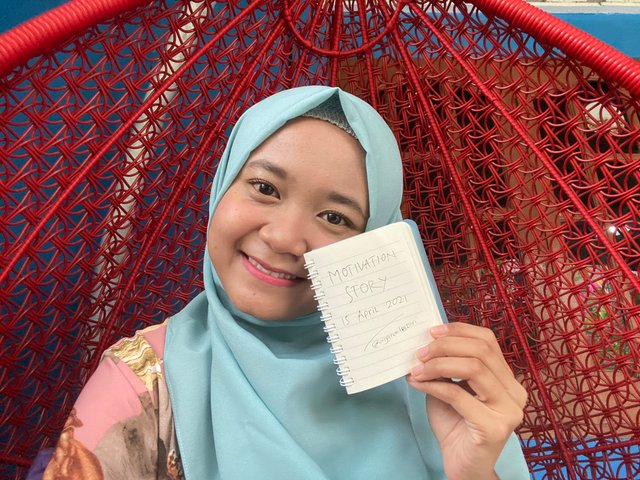 MOTIVATION
STORY
15 April 2021